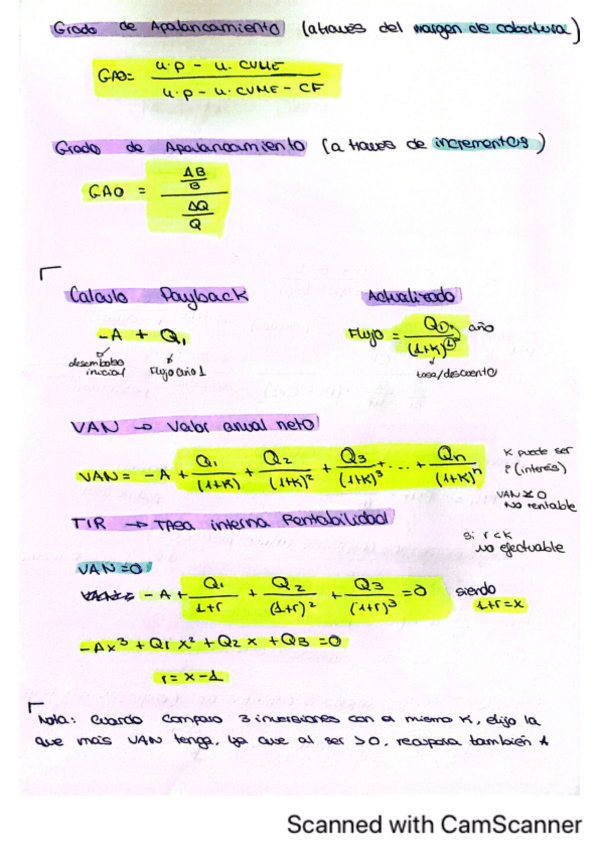 Grado de Apalancamiento (a través del margen de cobertura)
GAO = u·p - u·CVME / u·p - u·CVME - CF
Grado de Apalancamiento (a traves de incrementos)
GAO = ΔB/B / ΔQ/Q
Calculo Payback
Actualizado
-A + Q1
desembolso inicial
Flujo año 1
Flujo = Q1 / (1+K)^1
año
tasa/descuento
VAN → Valor anual neto
VAN = -A + Q1/(1+K) + Q2/(1+K)² + Q3/(1+K)³ + ... + Qn/(1+K)^n
K puede ser
i (interés)
VAN ≤ 0
No rentable
TIR → Tasa interna Rentabilidad
si r < k
no efectuable
VAN = 0
-A + Q1/1+r + Q2/(1+r)² + Q3/(1+r)³ = 0
siendo
1+r = x
-Ax³ + Q1 x² + Q2 x + Q3 = 0
r = x - 1
Nota: Cuando comparo 3 inversiones con el mismo K, elijo la
que más VAN tenga, ya que al ser >0, recupera también A
Scanned with CamScanner